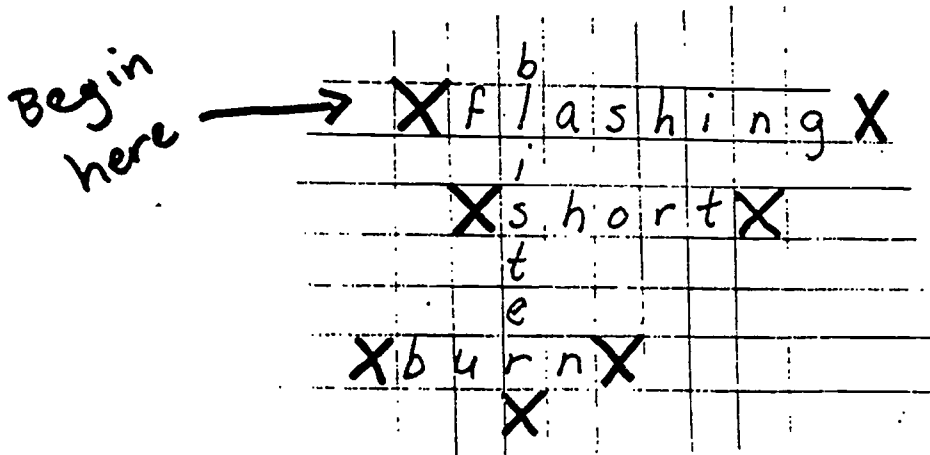 Begin
here
b
X f l a s h i n g X
i
X s h o r t X
t
e
X b u r n X
X